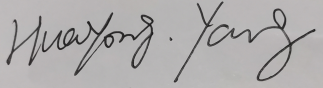 Huayong. Yang